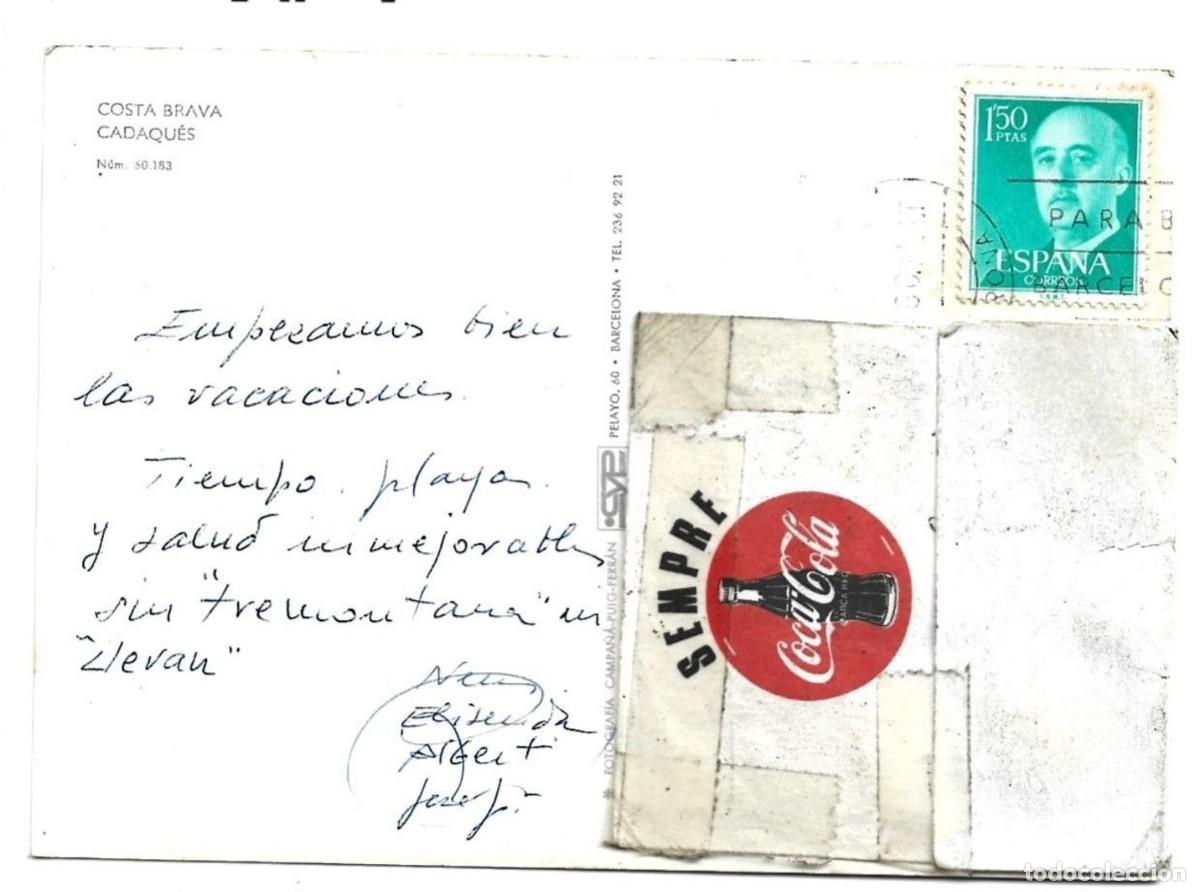 COSTA BRAVA
CADAQUÉS
Núm. 50.183
Empezamos bien
las vacaciones.
Tiempo, playa
y salud inmejorables
sin "tremontana" ni
"Llevan"
Elisenda
Albert
Josep
❋ FOTOGRAFÍA CAMPAÑÁ-PUIG-FERRÁN CYP PELAYO, 60 • BARCELONA • TEL. 236 92 21
1'50
PTAS
ESPAÑA
CORREOS
PARA B
BARCELO
SEMPRE
Coca-Cola
MARCA REG
todocoleccion